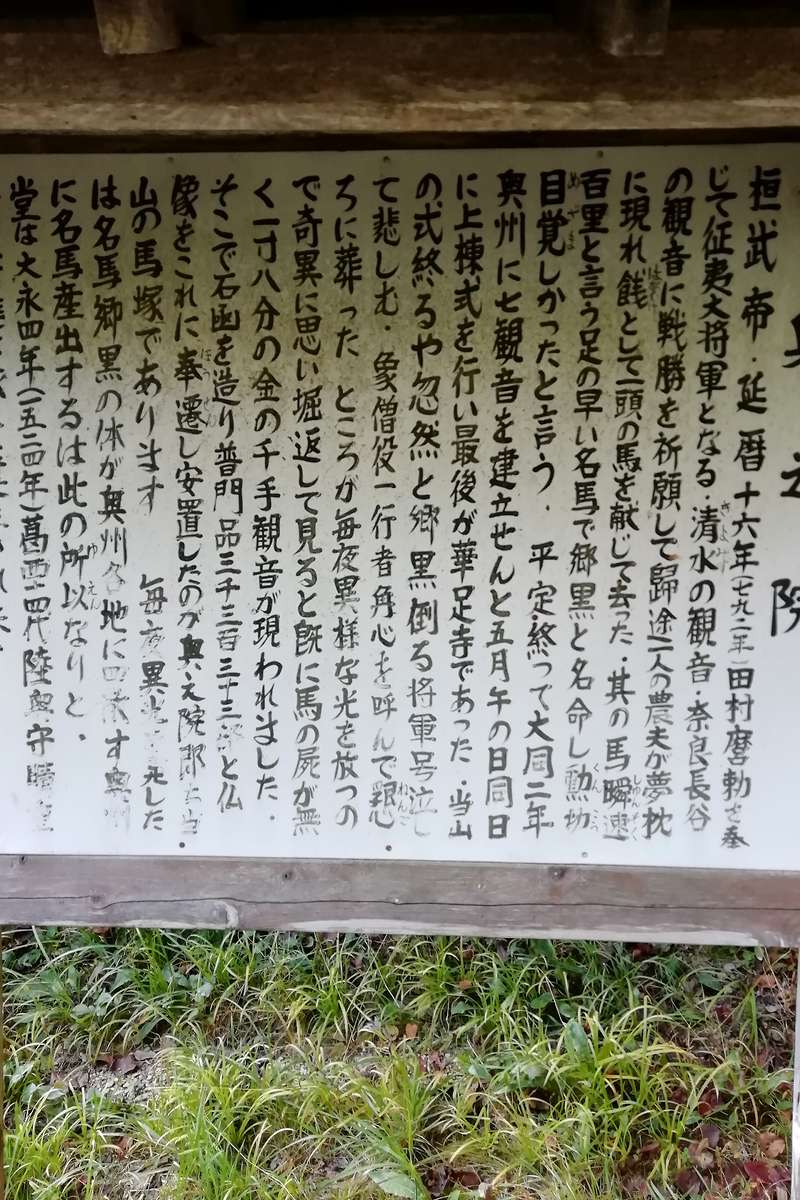 奥之院
桓武帝・延暦十六年(七九二年)田村麿勅を奉
じて征夷大将軍となる・清水の観音・奈良長谷
の観音に戦勝を祈願して歸途一人の農夫が夢枕
に現れ餞として一頭の馬を献じて去った・其の馬瞬速
百里と言う足の早い名馬で郷黒と名命し勳功
目覚しかったと言う・平定終って大同二年
奥州に七観音を建立せんと五月午の日同日
に上棟式を行い最後が華足寺であった・当山
の式終るや忽然と郷黒倒る将軍号泣し
て悲しむ・象僧役一行者角心を呼んで懇
ろに葬った ところが毎夜異様な光を放つの
で奇異に思い堀返して見ると既に馬の屍が無
く一寸八分の金の千手観音が現われました・
そこで石函を造り普門品三千三百三十三部と仏
像をこれに奉遷し安置したのが奥之院即ち当
山の馬塚であります 毎夜異光を した
は名馬郷黒の体が奥州各地に す奥州
に名馬産出するは此の所以なりと・
堂は大永四年(一五二四年)葛西十四代陸奥守晴